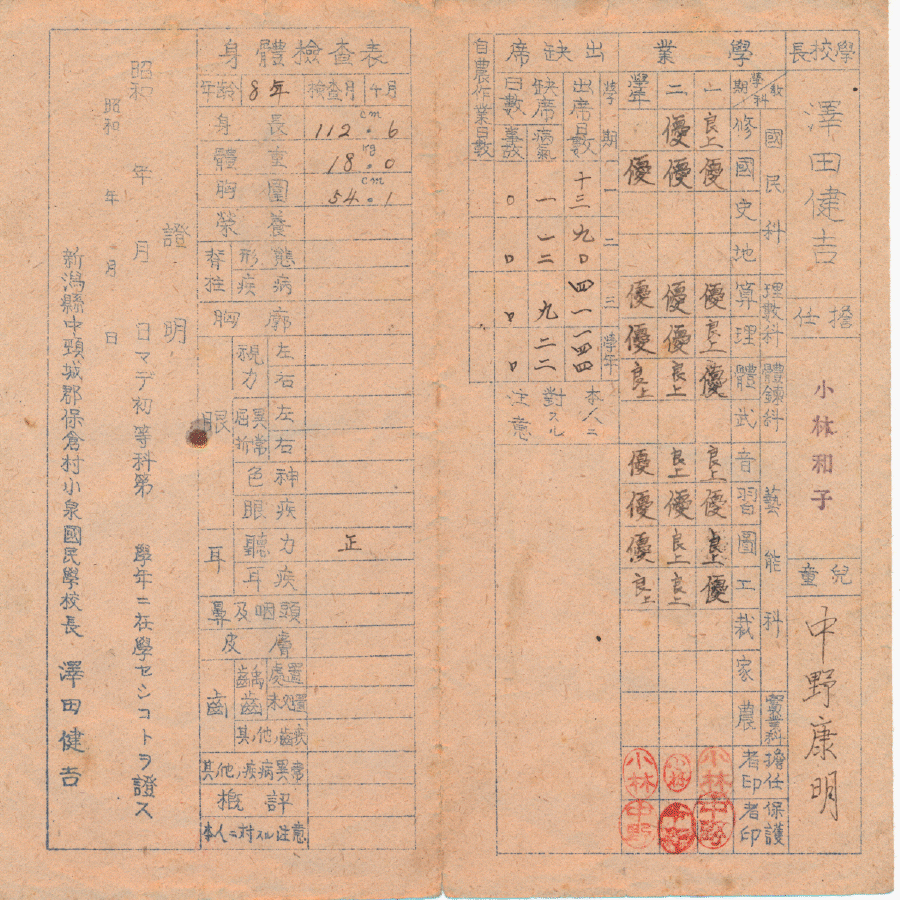 學校長
澤田健吉
擔任
小林和子
兒童
中野康明
學業
教科 國民科 理數科 體鍊科 藝能科 實業科 擔任者印 保護者印
學期 修 國 史 地 算 理 體 武 音 習 圖 工 裁 家 農
一 良上 優 優 良上 優 良上 優 良上 優 小林 中野
二 優 優 優 優 良上 良上 優 良上 良上 小林 中野
學年 優 優 優 良上 優 優 優 良上 小林 中野
出缺席
學期 一 二 三 學年
出席日數 十三 九〇 四一 一四四
缺席日數 病氣 一 一二 九 二二
事故 〇 〇 〇 〇
自農作業日數
本人ニ
對スル
注意
身體檢査表
年齡 8年 檢査月 4月
身長 112.6 cm
體重 18.0 kg
胸圍 54.1 cm
榮養
脊柱 形態
疾病
胸廓
眼 視力 左
右
屈折異常 左
右
色神
眼疾
耳 聽力 正
耳疾
鼻及咽頭
皮膚
齒 齲齒 處置
未處置
其ノ他ノ齒疾
其ノ他ノ疾病異常
概評
本人ニ對スル注意
證明
昭和 年 月 日マデ初等科第 學年ニ在學セシコトヲ證ス
昭和 年 月 日
新潟縣中頸城郡保倉村小泉國民學校長 澤田健吉